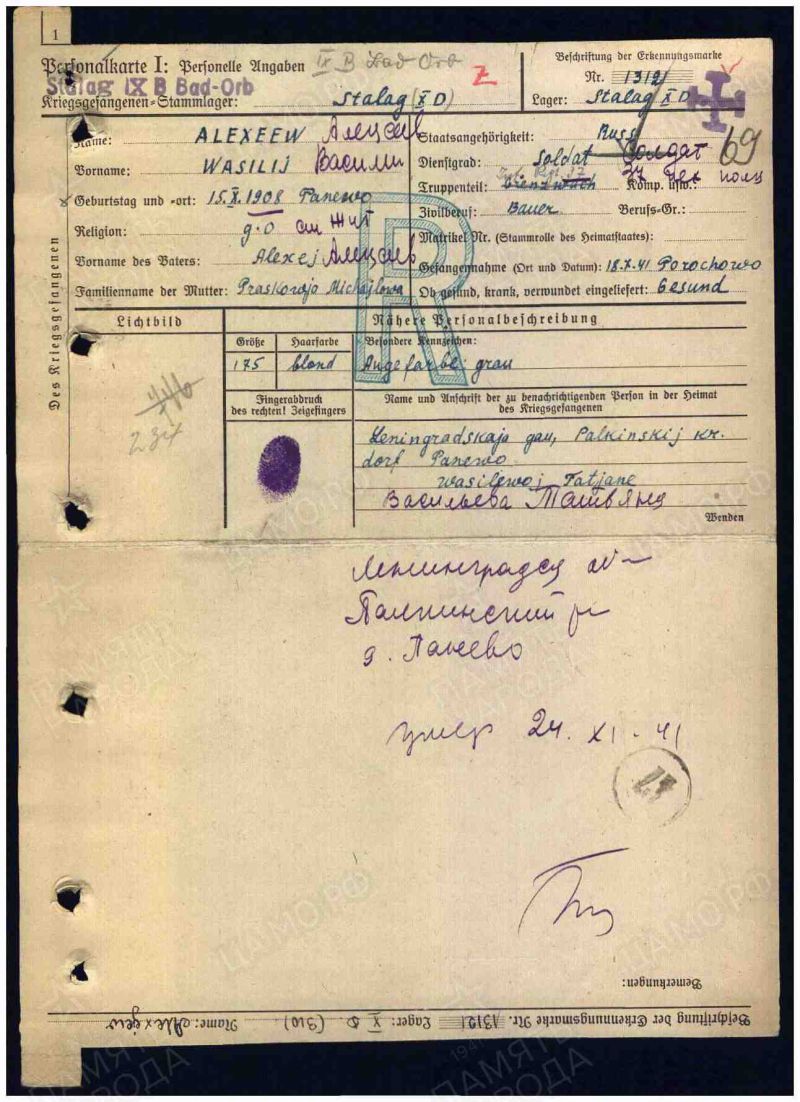 1
Personalkarte I: Personelle Angaben
IX B Bad Orb
Z
Beschriftung der Erkennungsmarke
Stalag IX B Bad-Orb
Nr. 13121
Kriegsgefangenen-Stammlager: Stalag (X D)
Lager: Stalag X D
Des Kriegsgefangenen
Name: ALEXEEW Алексеев
Staatsangehörigkeit: Russ
69
Vorname: WASILIJ Василий
Dienstgrad: Soldat Солдат
Truppenteil: Komp. usw.: полк
Geburtstag und -ort: 15.X.1908 Panewo
Zivilberuf: Bauer Berufs-Gr.:
Religion: g.o
Matrikel Nr. (Stammrolle des Heimatstaates):
Vorname des Vaters: Alexej Алексей
Gefangennahme (Ort und Datum): 18.X.41 Porochowo
Familienname der Mutter: Praskowja Michajlowa
Ob gesund, krank, verwundet eingeliefert: Gesund
R
Lichtbild
Nähere Personalbeschreibung
Größe Haarfarbe Besondere Kennzeichen:
175 blond Augefarbe: grau
Fingerabdruck
des rechten! Zeigefingers
Name und Anschrift der zu benachrichtigenden Person in der Heimat
des Kriegsgefangenen
Leningradskaja gau, Palkinskij kr.
dorf Panewo
Wasilewoj Tatjane
Васильева Татьяна
Wenden
Палкинский р
д. Панево
умер 24. XI - 41
Bemerkungen:
Beschriftung der Erkennungsmarke Nr. 13121 Lager: X D (310) Name: Alexejew
ПАМЯТЬ НАРОДА
ЦАМО.РФ